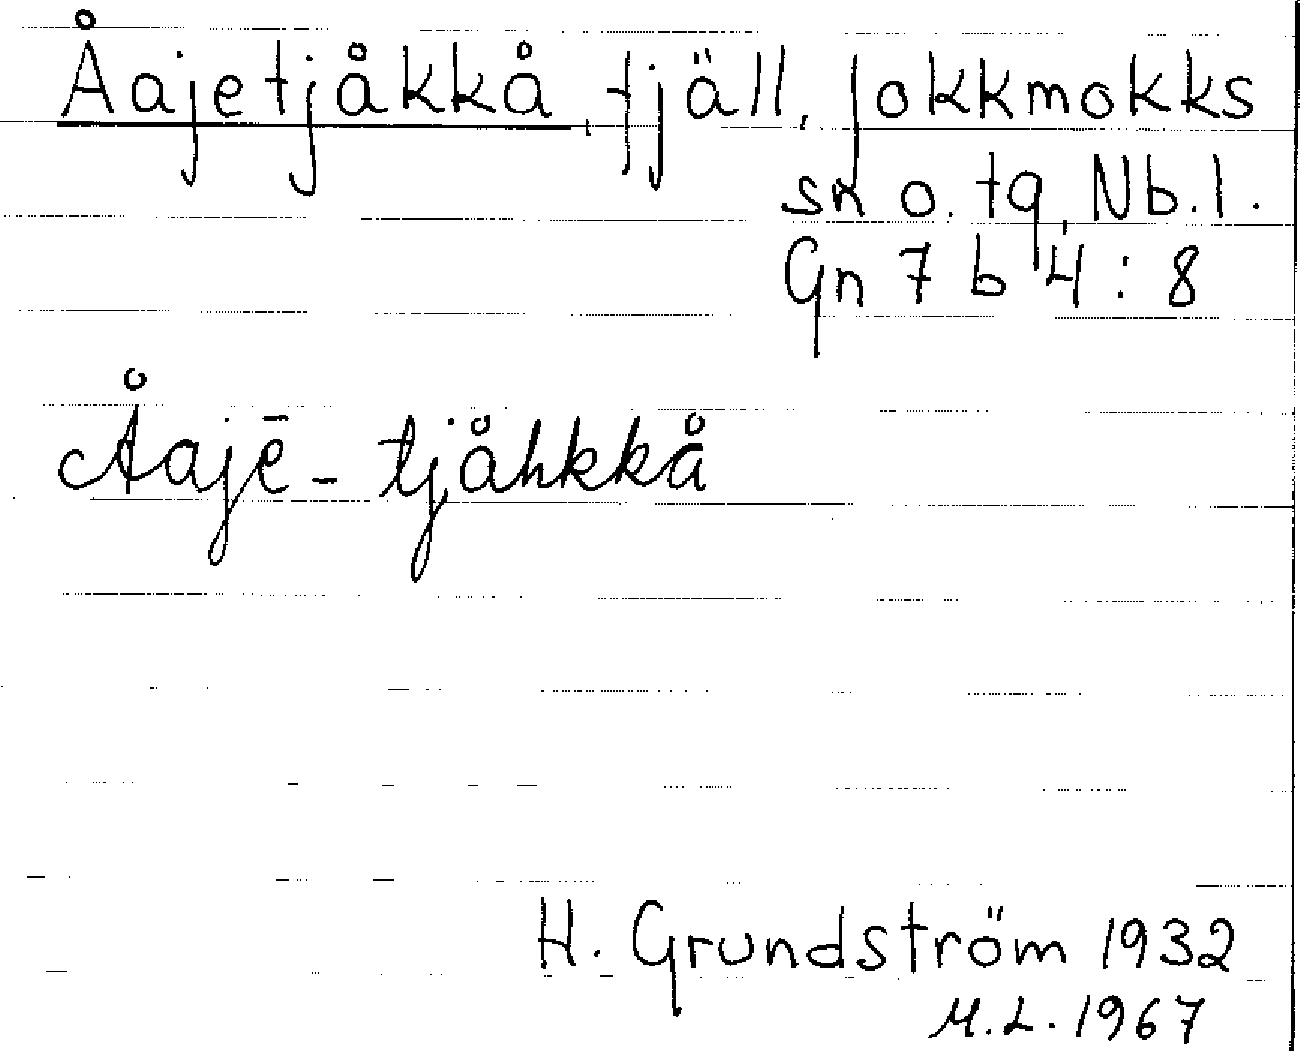 Åajetjåkkå, fjäll, Jokkmokks
sn o. tg, Nb.l.
Gn 7 b 4 : 8
Åajē-tjåhkkå
H. Grundström 1932
M.L. 1967